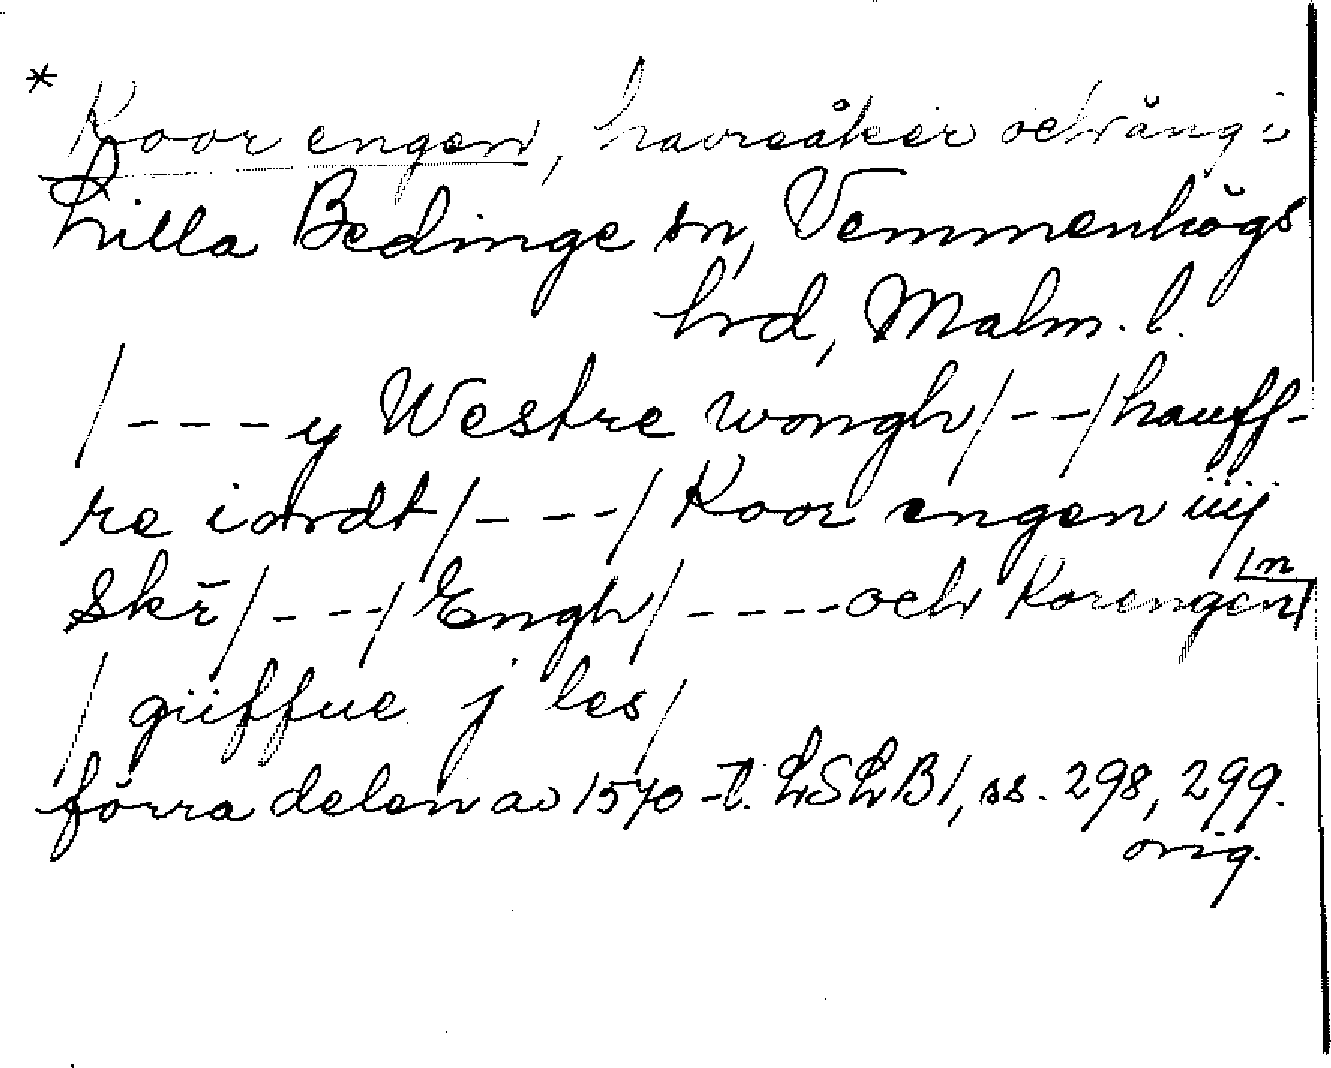 * Koor engen, havreåker och äng i
Lilla Bedinge sn, Vemmenhögs
hrd, Malm. l.
/----y Westre wongh/---/hauff-
re iordt/----/Koor engen iiij
Skr̄/----/Engh/-----och Korengen
/güffue j les/
förra delen av 1570-t. LSLB1, ss. 298, 299.
orig.